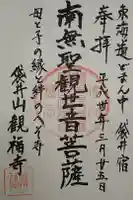 東海道どまん中 袋井宿
奉拝 平成廿年三月廿五日
南無聖観世音菩薩
母と子の縁と絆のへそ寺
袋井山観福寺